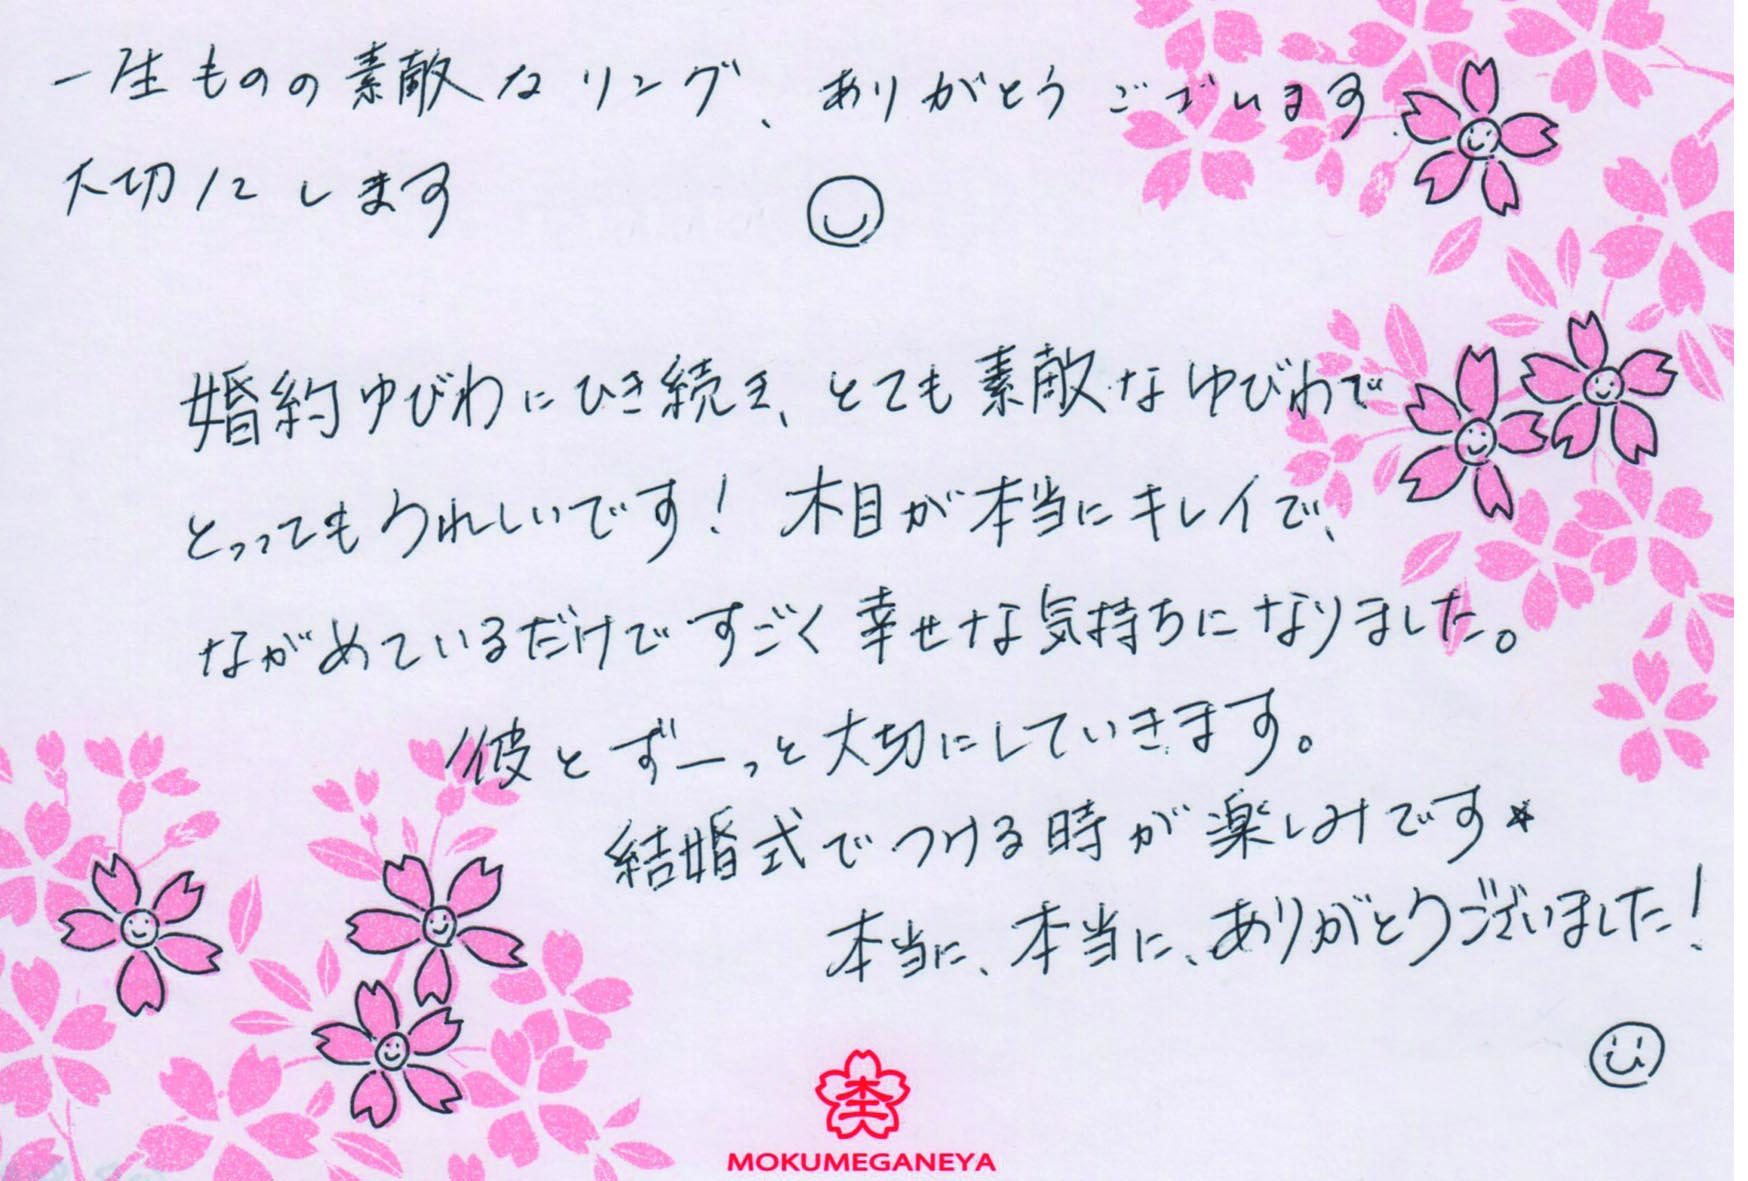 一生ものの素敵なリング、ありがとうございます
大切にします
婚約ゆびわにひき続き、とても素敵なゆびわで
とってもうれしいです！ 木目が本当にキレイで、
ながめているだけですごく幸せな気持ちになりました。
彼とずーっと大切にしていきます。
結婚式でつける時が楽しみです☆
本当に、本当に、ありがとうございました！
MOKUMEGANEYA